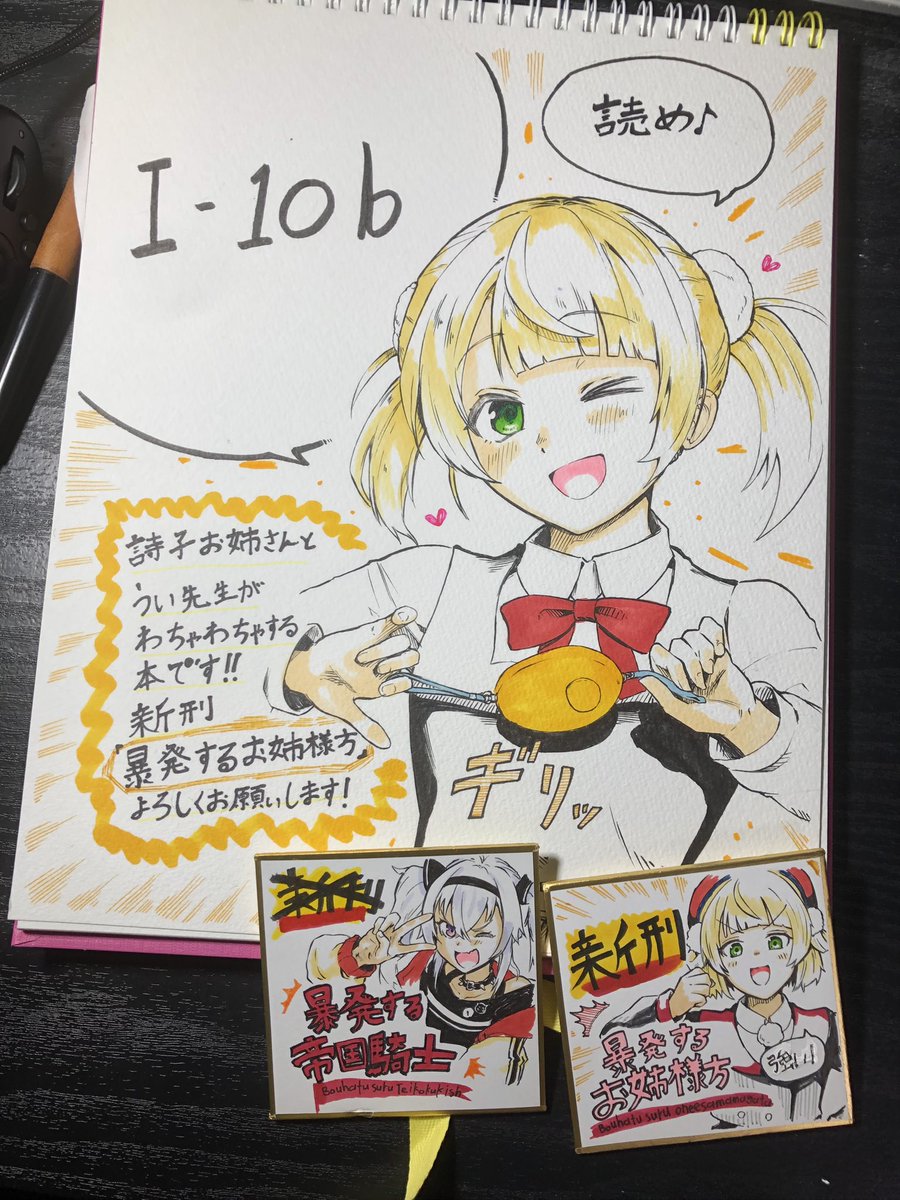 読め♪
I-10b
詩子お姉さんと
うい先生が
わちゃわちゃする
本です!!
新刑
『暴発するお姉様方』
よろしくお願いします!
ギリッ
新刊
暴発する
帝国騎士
Bouhatu suru Teikokukishi
新刑
暴発する
お姉様方
Bouhatu suru oneesamagata